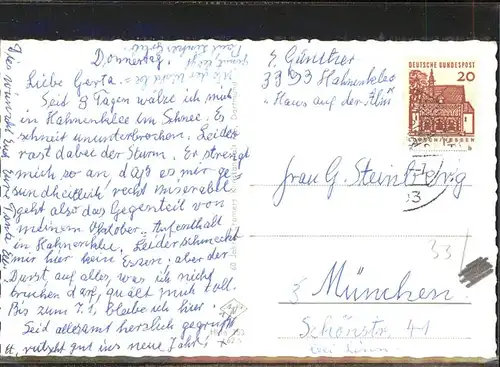 Donnerstag,
Liebe Gerta.
Seid 8 Tagen wälze ich mich
in Hahnenklee im Schnee. Es
schneit ununterbrochen. Leider
rast dabei der Sturm. Er strengt
mich so an, daß es mir ge
sundheitlich recht miserabel
geht also das Gegenteil von
meinem Oktober-Aufenthalt
in Hahnenklee. Leider schmeckt
mir hier kein Essen. aber der
Durst auf alles, was ich nicht
trinken darf, quält mich toll.
Bis zum 7.1. bleibe ich hier.
Seid allesamt herzlich gegrüßt
rutscht gut ins neue Jahr!
Günther
3393 Hahnenklee
"Haus auf der Alm"
DEUTSCHE BUNDESPOST
20
LORSCH/HESSEN
Frau G. Steinberg
33
München
Schönstr 41